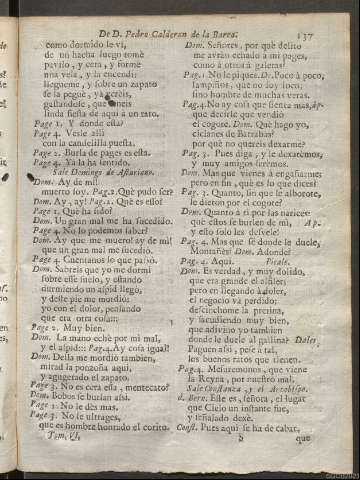 De D. Pedro Calderon de la Barca. 137
como dormido le vi,
de un hacha luego tomè
pavilo, y cera, y formè
una vela, y la encendi:
lleguème, y sobre un zapato
se la peguè, ya vereis,
gallandose, que
linda fiesta de aqui a un rato.
Page 1. Y donde està?
Page 4. Vesle alli
con la candelilla puesta.
Page 2. Burla de pages es esta.
Page 4. Ya la ha sentido.
Sale Domingo de Asturiano.
Dom. Ay de mi!
muerto soy. Pag.2. Què pudo ser?
Dom. Ay, ay! Pag.1. Què es esso?
Page 1. Què ha sido?
Dom. Un gran mal me ha sucedido.
Page 4. No lo podemos saber?
Dom. Ay que me muero! ay de mi!
que un gran mal me sucediò.
Page 4. Cuentanos lo que passò.
Dom. Sabreis que yo me dormi
sobre esse suelo, y estando
durmiendo un aspid llegò,
y deste pie me mordiò:
yo con el dolor, pensando
que era otra
Page 2. Muy bien.
Dom. La mano echè por mi mal,
y el aspid:: Pag.4. Ay cosa igual!
Dom. Della me mordiò tambien,
mirad la ponzoña aqui,
y agugerado el zapato.
Page 3. No es cera essa, mentecato?
Dom. Bobos se burlan assi.
Page 1. No le dès mas.
Page 3. No le ultrages,
que es hombre honrado el corito.
Tom. VI.
Dom. Señores, por què delito
me avràn echado à mi pages,
como à otros à galeras?
Pag.1. No le piquen. De. Poco à poco,
lampiños, que no soy loco,
sino hombre de muchas veras.
Pag.4. No ay cosa que sienta mas, Ap.
que decirle que vendiò
el cogote. Dom. Què hago yo,
ciclanes de Barrabàs?
por què no quereis dexarme?
Pag. 3. Pues diga, y le dexarèmos,
y muy amigos serèmos.
Dom. Mas que vienes à engañarme:
pero en fin, què es lo que dices?
Pag. 3. Quanto, sin que le alborote,
le dieron por el cogote?
Dom. Quanto à ti por las narices:
què estos se burlen de mi, Ap.
y esto solo les desvele!
Pag. 4. Mas que sè donde le duele,
Montañès? Dom. Adonde?
Pag. 4. Aqui. Picale.
Dom. Es verdad, y muy dolido,
que era grande el alfiler;
pero en llegando à doler,
el negocio va perdido:
descincheme la pretina,
y sacudiendo muy bien,
que adivino yo tambien
donde le duele al gallina? Dales.
Paguen assi, pese à tal,
los buenos ratos que tienen.
Pag.4. Mesuremonos, que viene
la Reyna, por nuestro mal.
Sale Constança, y el Arçobispo.
d. Bern. Este es, señora, el lugar
que Cielo un instante fue,
y señalado dexè.
Const. Pues aqui se ha de cabar,
S que